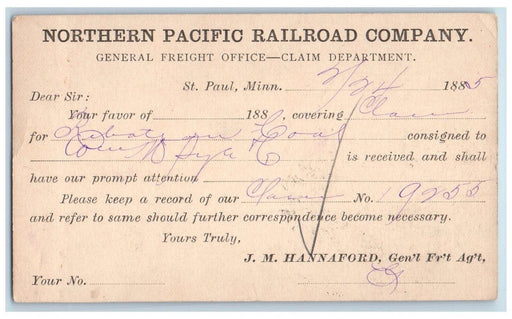 NORTHERN PACIFIC RAILROAD COMPANY.
GENERAL FREIGHT OFFICE—CLAIM DEPARTMENT.
St. Paul, Minn. 2/24 1885
Dear Sir:
Your favor of 188 , covering Claim
for Rebate on Coal consigned to
is received and shall
have our prompt attention
Please keep a record of our Claim No. 19255
and refer to same should further correspondence become necessary.
Yours Truly,
J. M. HANNAFORD, Gen'l Fr't Ag't,
Your No.